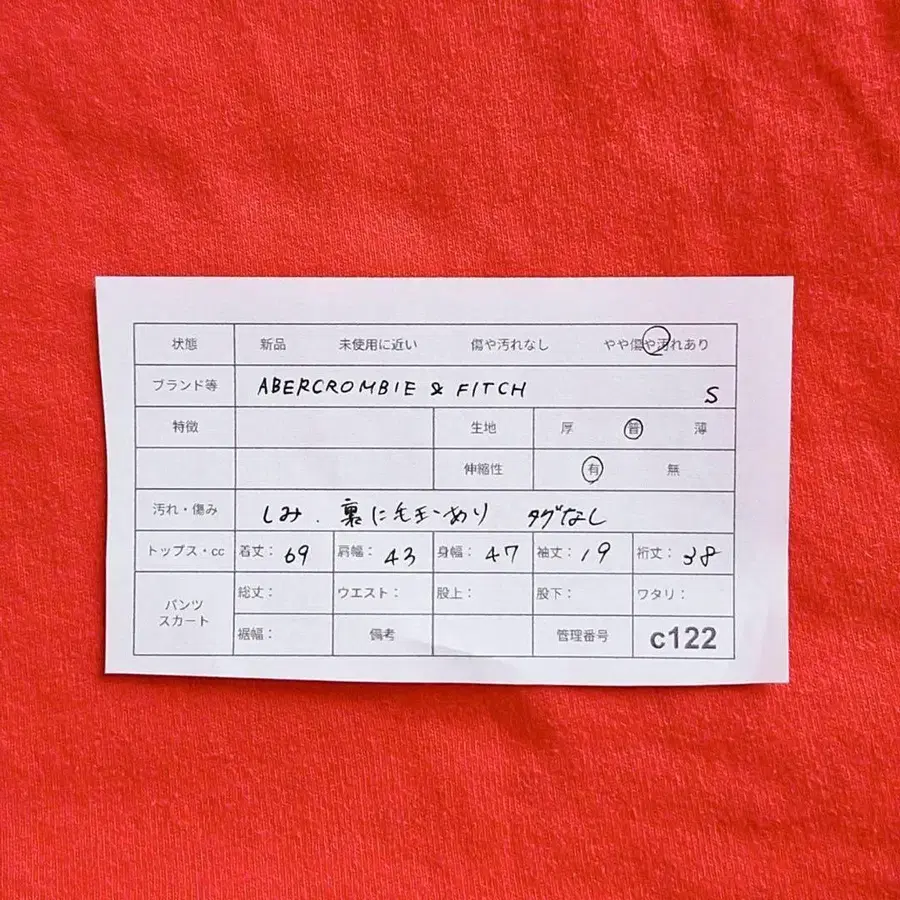 状態 新品 未使用に近い 傷や汚れなし やや傷や汚れあり
ブランド等 ABERCROMBIE & FITCH S
特徴 生地 厚 普 薄
伸縮性 有 無
汚れ・傷み しみ. 裏に毛玉あり タグなし
トップス・cc 着丈: 69 肩幅: 43 身幅: 47 袖丈: 19 裄丈: 38
パンツ スカート 総丈: ウエスト: 股上: 股下: ワタリ:
裾幅: 備考 管理番号 c122